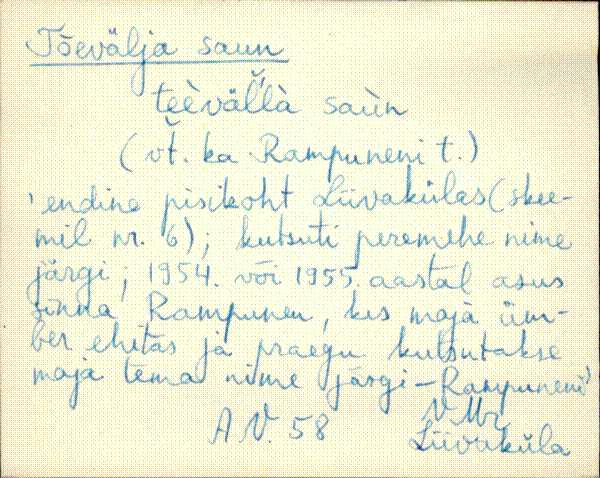 Tõevälja saun
teèvä̆l'là saùn
(vt. ka Rampuneni t.)
'endine pisikoht Liivakülas (skee-
mil nr. 6); kutsuti peremehe nime
järgi; 1954. või 1955. aastal asus
sinna Rampunen, kes maja üm-
ber ehitas ja praegu kutsutakse
maja tema nime järgi - Rampuneni'
A.V. 58 VMr,
Liivaküla